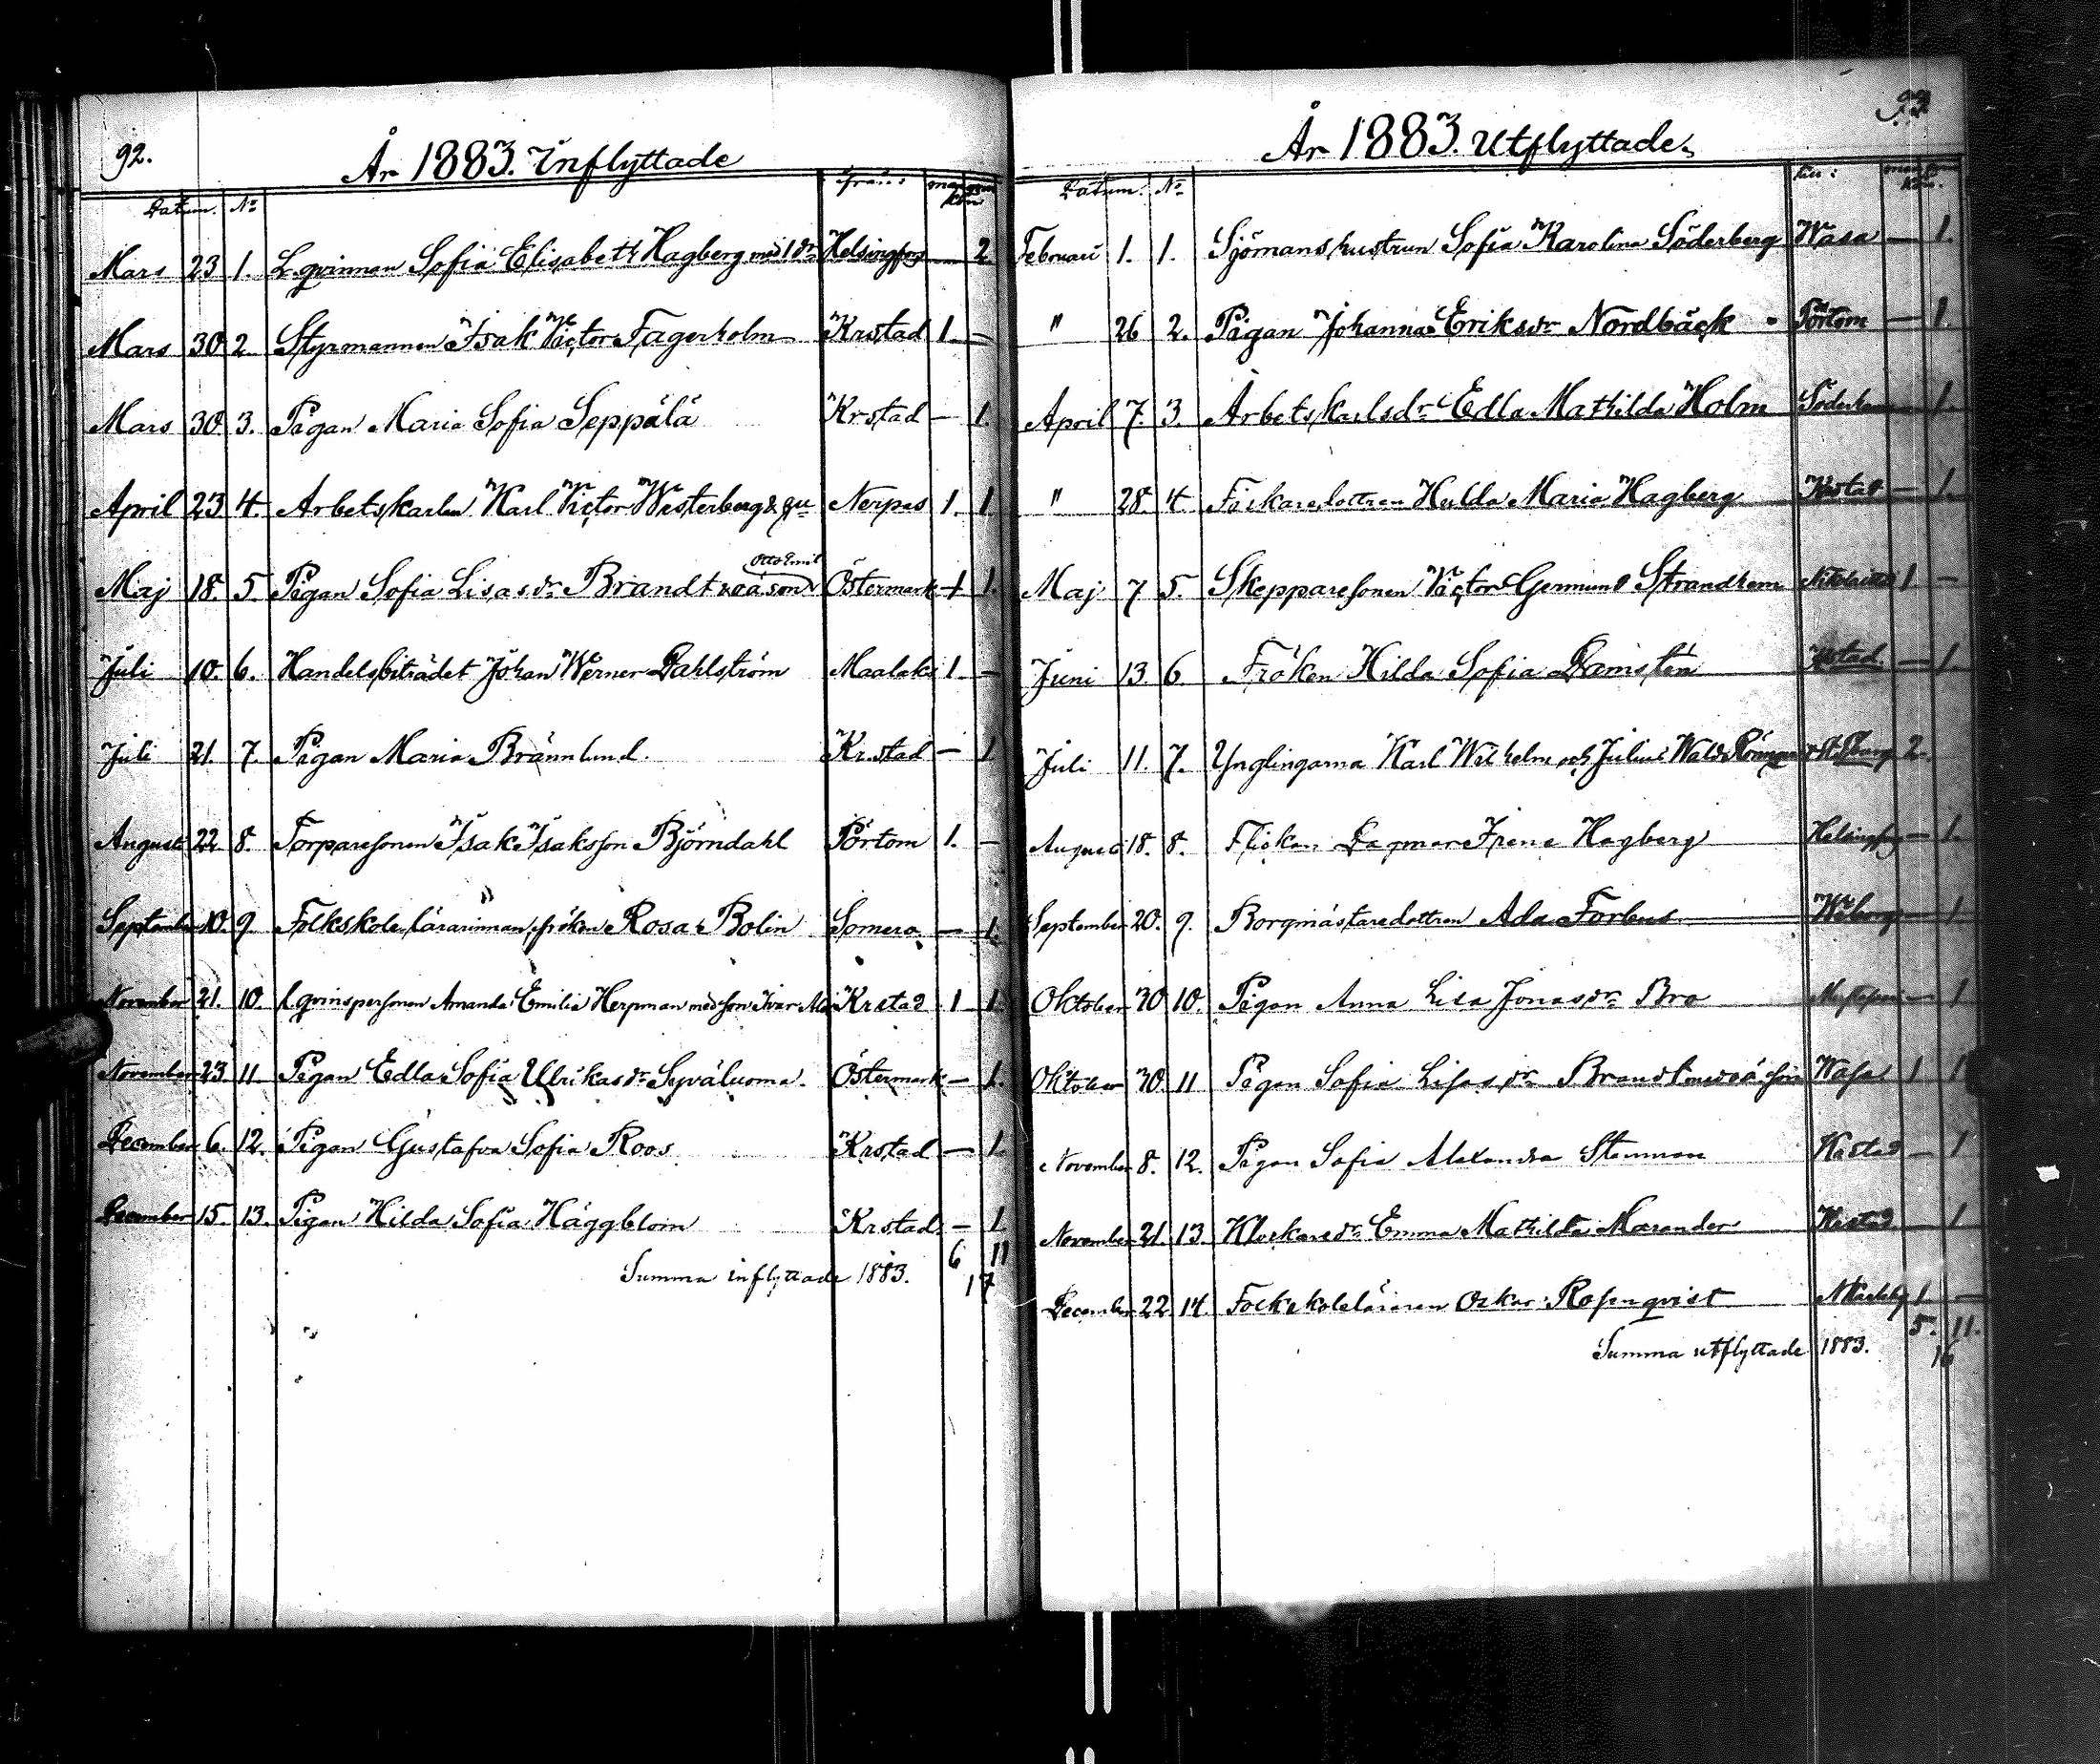 92.
År 1883. Inflyttade
Datum. No från: kön
Mars 23 1. L.qvinnan Sofia Elisabeth Hagberg med 1 dr Helsingfors — 2
Mars 30 2. Styrmannen Isak Victor Fagerholm Krstad 1. —
Mars 30. 3. Pigan Maria Sofia Seppälä Krstad — 1.
April 23 4. Arbetskarlen Karl Victor Westerberg & hu Nerpes 1. 1
Otto Emil
Maj 18. 5. Pigan Sofia Lisasdr Brandt med oä son Östermark 1 1.
Juli 10. 6. Handelsbiträdet Johan Werner Dahlström Maalaks 1. —
Juli 21. 7. Pigan Maria Brännlund. Kr.stad — 1
Augusti 22 8. Torparesonen Isak Isaksson Björndahl Pörtom 1. —
September 10. 9. Folkskolelärarinnan, fröken Rosa Bolin Somero — 1.
November 21. 10. L.qvinspersonen Amanda Emilia Herpman med son Ivar Krstad 1 1.
November 23 11 Pigan Edla Sofia Ulrikasdr Syväluoma. Östermark — 1.
December 6. 12. Pigan Gustafva Sofia Roos Krstad — 1.
December 15. 13. Pigan Hilda Sofia Häggblom Krstad — 1
6 11
Summa inflyttade 1883. 17
93
År 1883. Utflyttade.
Datum. No till: kön.
Februari 1. 1. Sjömanshustrun Sofia Karolina Söderberg Wasa — 1.
" 26 2. Pigan Johanna Eriksdr Nordbäck Pörtom — 1
April 7. 3. Arbetskarlsdr Edla Mathilda Holm — 1.
" 28. 4. Fiskaredottren Hulda Maria Hagberg Krstad — 1.
Maj 7 5. Skepparesonen Victor Germund Strandhem 1 —
Juni 13. 6. Fröken Hilda Sofia Damstén Krstad. — 1.
Juli 11. 7. Ynglingarna Karl Wilhelm och Julius Wald. St. Pburg 2.
Augusti 18. 8. Flickan Dagmar Irene Hagberg Helsingfors — 1.
September 20. 9. Borgmästaredottren Ada Forbus Wiborg — 1
Oktober 30 10. Pigan Anna Lisa Jonasdr Bro — 1
Oktober 30. 11 Pigan Sofia Lisasdr Brandt med oä son Wasa 1 1
November 8. 12. Pigan Sofia Alexandra Stenman Krstad — 1
November 21. 13. Klockaredr Emma Mathilda Marander Krstad — 1
December 22. 14. Folkskoleläraren Oskar Rosenqvist 1 —
5. 11.
Summa utflyttade 1883. 16